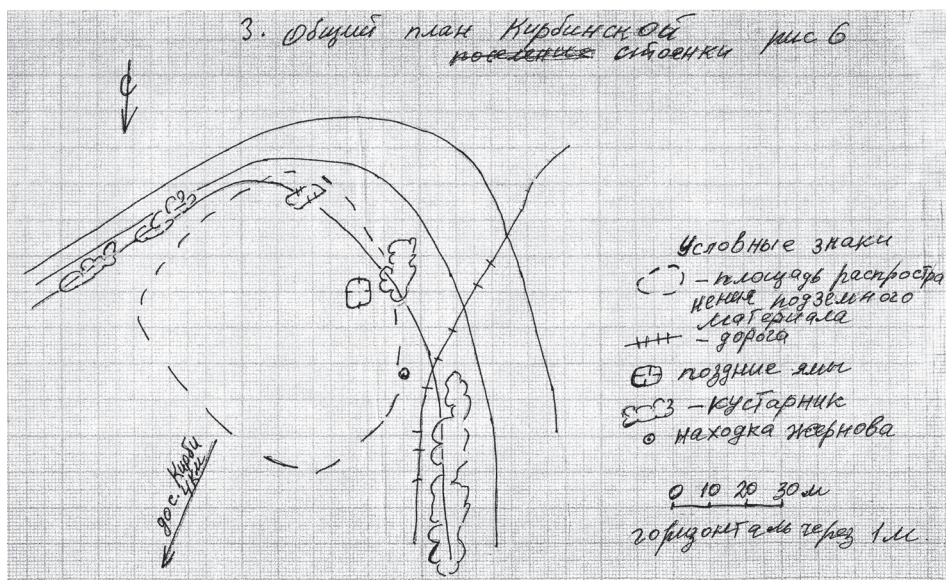 3. Общий план Кирбинской рис 6
поселение стоянки
С
Условные знаки
– площадь распростра
нения подземного
материала
– дорога
поздние ямы
– кустарник
находка жернова
до с. Кирби
4 км
0 10 20 30 м
горизонталь через 1 м.